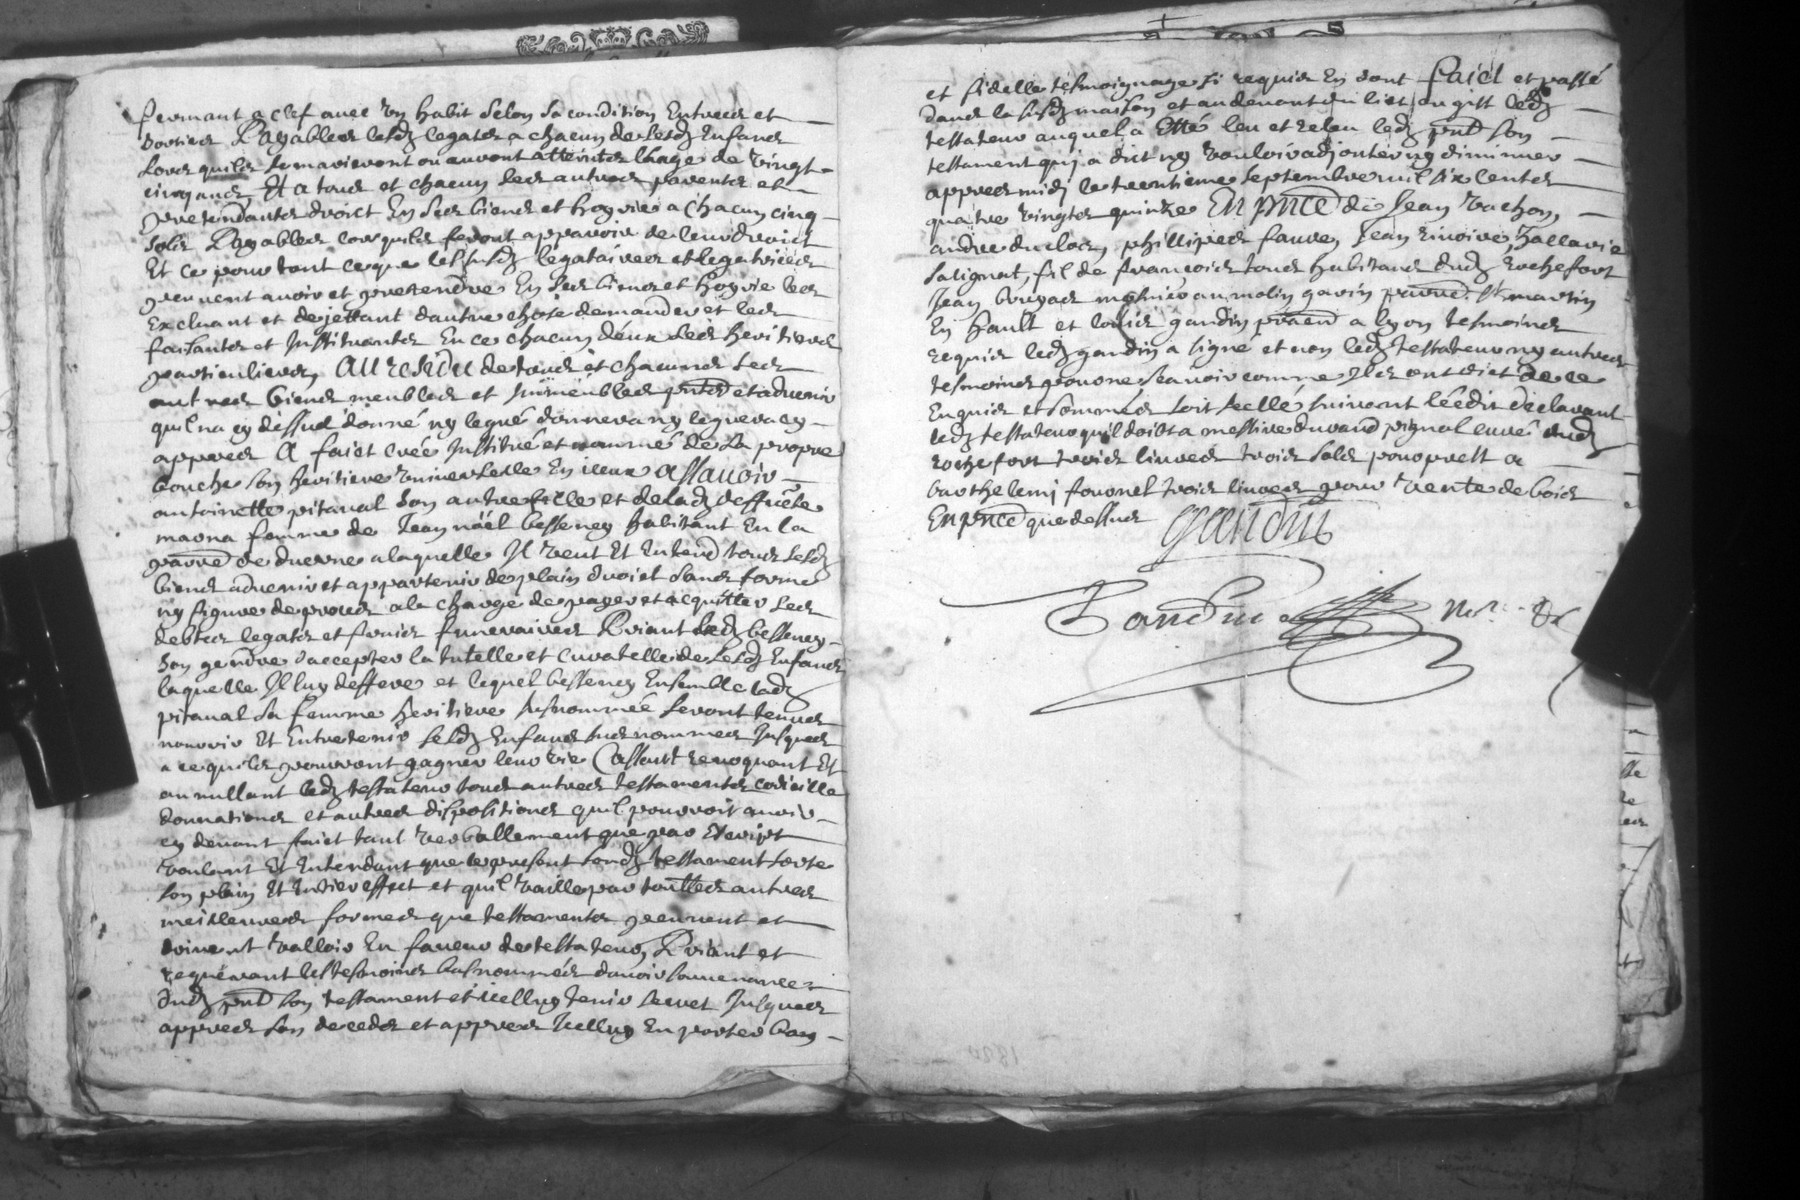 fermant a clef avec un habit selon sa condition Entrees et
sorties Payables lesdz legats a chacun de sesdz Enfans
Lors quils se marieront ou auront atteints l'aage de vingt
cinq ans Et a tous et chacuns ses autres parents et
pretendants droict En ses biens et hoyrie a chacun cinq
solz Payables lors quils feront apparoir de leur droict
Et ce pour tout ce que les susdz legataires et legatrices
peuvent avoir et pretendre En ses biens et hoyrie les
Excluant et dejettant d'autre chose demander et les
faisants et Instituants En ce chacun deux ses heritiers
particuliers, Au residu de tous et chacuns ses
autres biens meubles et Immeubles pnts et advenir
quil na cy dessus donné ny legué donnera ny leguera cy
appres A faict creé Institué et nommé de sa propre
bouche son heritiere universelle En iceux Assavoir
antoinette pitaval son autre fille et de ladz deffuncte
maona femme de Jean noël besseney habitant En la
parroe de duerne a laquelle Il veut Et Entend tous sesdz
biens advenir et appartenir de plain droict sans forme
ny figure de proces a la charge de payer et acquitter ses
debtes legats et frais funeraires Priant ledz besseney
son gendre d'accepter la tutelle et curatelle de sesdz Enfans
laquelle Il luy deffere et lequel besseney Ensemble ladz
pitaval sa femme heritiere susnommée seront tenus
nourrir Et Entretenir sesdz Enfans susnommes Jusques
a ce quils pourront gagner leur vie Cassant revoquant Et
annullant ledz testateur tous autres testaments codicille
donnations et autres dispositions quil pourroit avoir
cy devant faict tant verballement que par Escript
voulant Et Entendant que le present sondz testament sorte
son plain Et Entier effect et quil vaille par touttes autres
meilleures formes que testaments peuvent et
doivent valloir En faveur de testateur, Priant et
requerant les tesmoins bas nommés davoir souvenance
dudz pnt son testament et icelluy tenir secret Jusques
appres son deceds et appres Icelluy En porter bon
et fidelle tesmoignage si requis En sont faict et passé
dans la susdz maison et au devant du lict ou gist ledz
testateur auquel a Esté leu et releu ledz pnt son
testament qui a dict ny vouloir adjouter ny diminuer
appres midy le trentieme septembre mil six cents
quatre vingts quinze En pnce de Jean vachon,
andre duclos, phillipes faure, Jean
salignat, fil de francois tous habitans dudz rochefort
Jean bruyas mosnier au molin gavin parroe St martin
En hault et gaudin praen a lyon tesmoins
requis ledz gaudin a signé et non ledz testateur ny autres
tesmoins pour ne scavoir comme Ils ont dict de ce
Enquis et sommés soit scellé suivant l'eedit declarant
ledz testateur quil doibt a messire durand pignal curé dudz
rochefort trois livres trois solz pour prest a
barthelemi fouonel trois livres pour vente de bois
En pnce que dessus gaudin